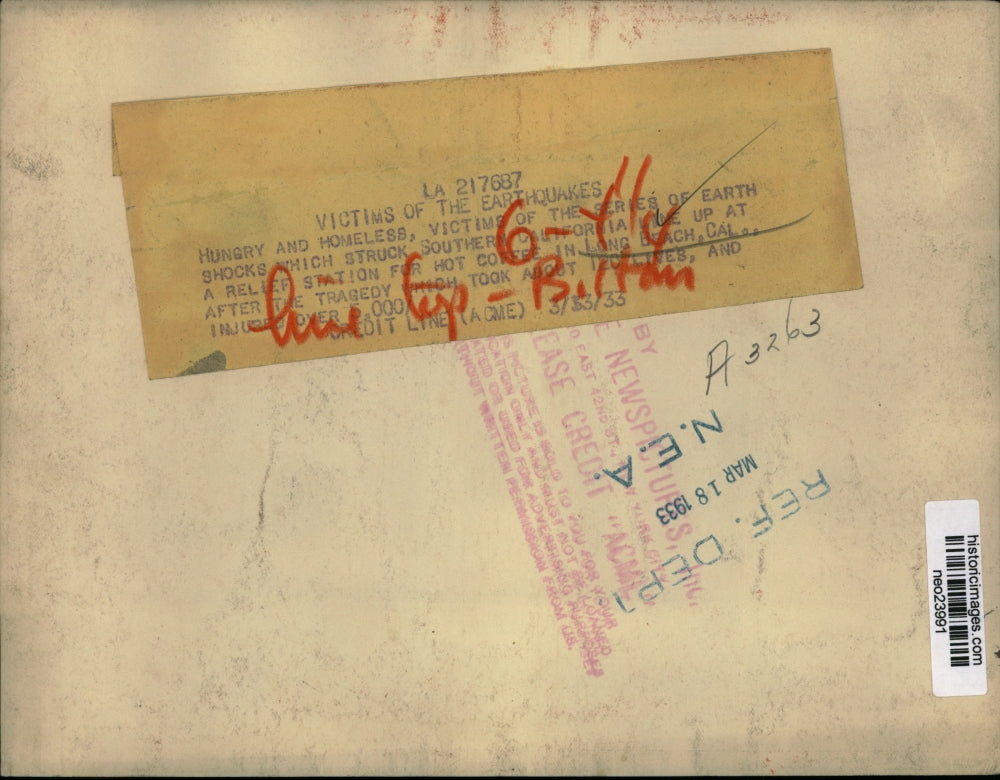 LA 217687
VICTIMS OF THE EARTHQUAKES
HUNGRY AND HOMELESS, VICTIMS OF THE SERIES OF EARTH
SHOCKS WHICH STRUCK SOUTHERN CALIFORNIA LINE UP AT
A RELIEF STATION FOR HOT COFFEE IN LONG BEACH, CAL.,
AFTER THE TRAGEDY WHICH TOOK ABOUT LIVES, AND
INJURED OVER ,000
CREDIT LINE (ACME) 3/ /33
6-
line up -
A 3263
BY
NEWSPICTURES, INC.
EAST 42ND ST., NEW YORK CITY
PLEASE CREDIT "ACME"
THIS PICTURE IS SOLD TO YOU FOR YOUR
PUBLICATION ONLY AND MUST NOT BE LOANED
OR USED FOR ADVERTISING PURPOSES
WITHOUT WRITTEN PERMISSION FROM US.
N.E.A.
MAR 18 1933
REF. DEPT
historicimages.com
neo23991